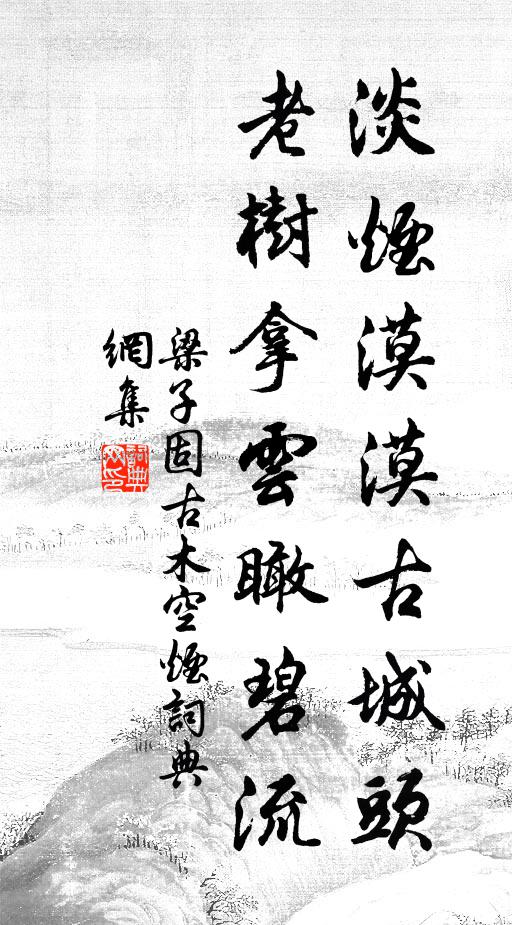 淡煙漠漠古城頭
老樹拿雲瞰碧流
梁子固古木空煙詞典
網集
詞典
网印